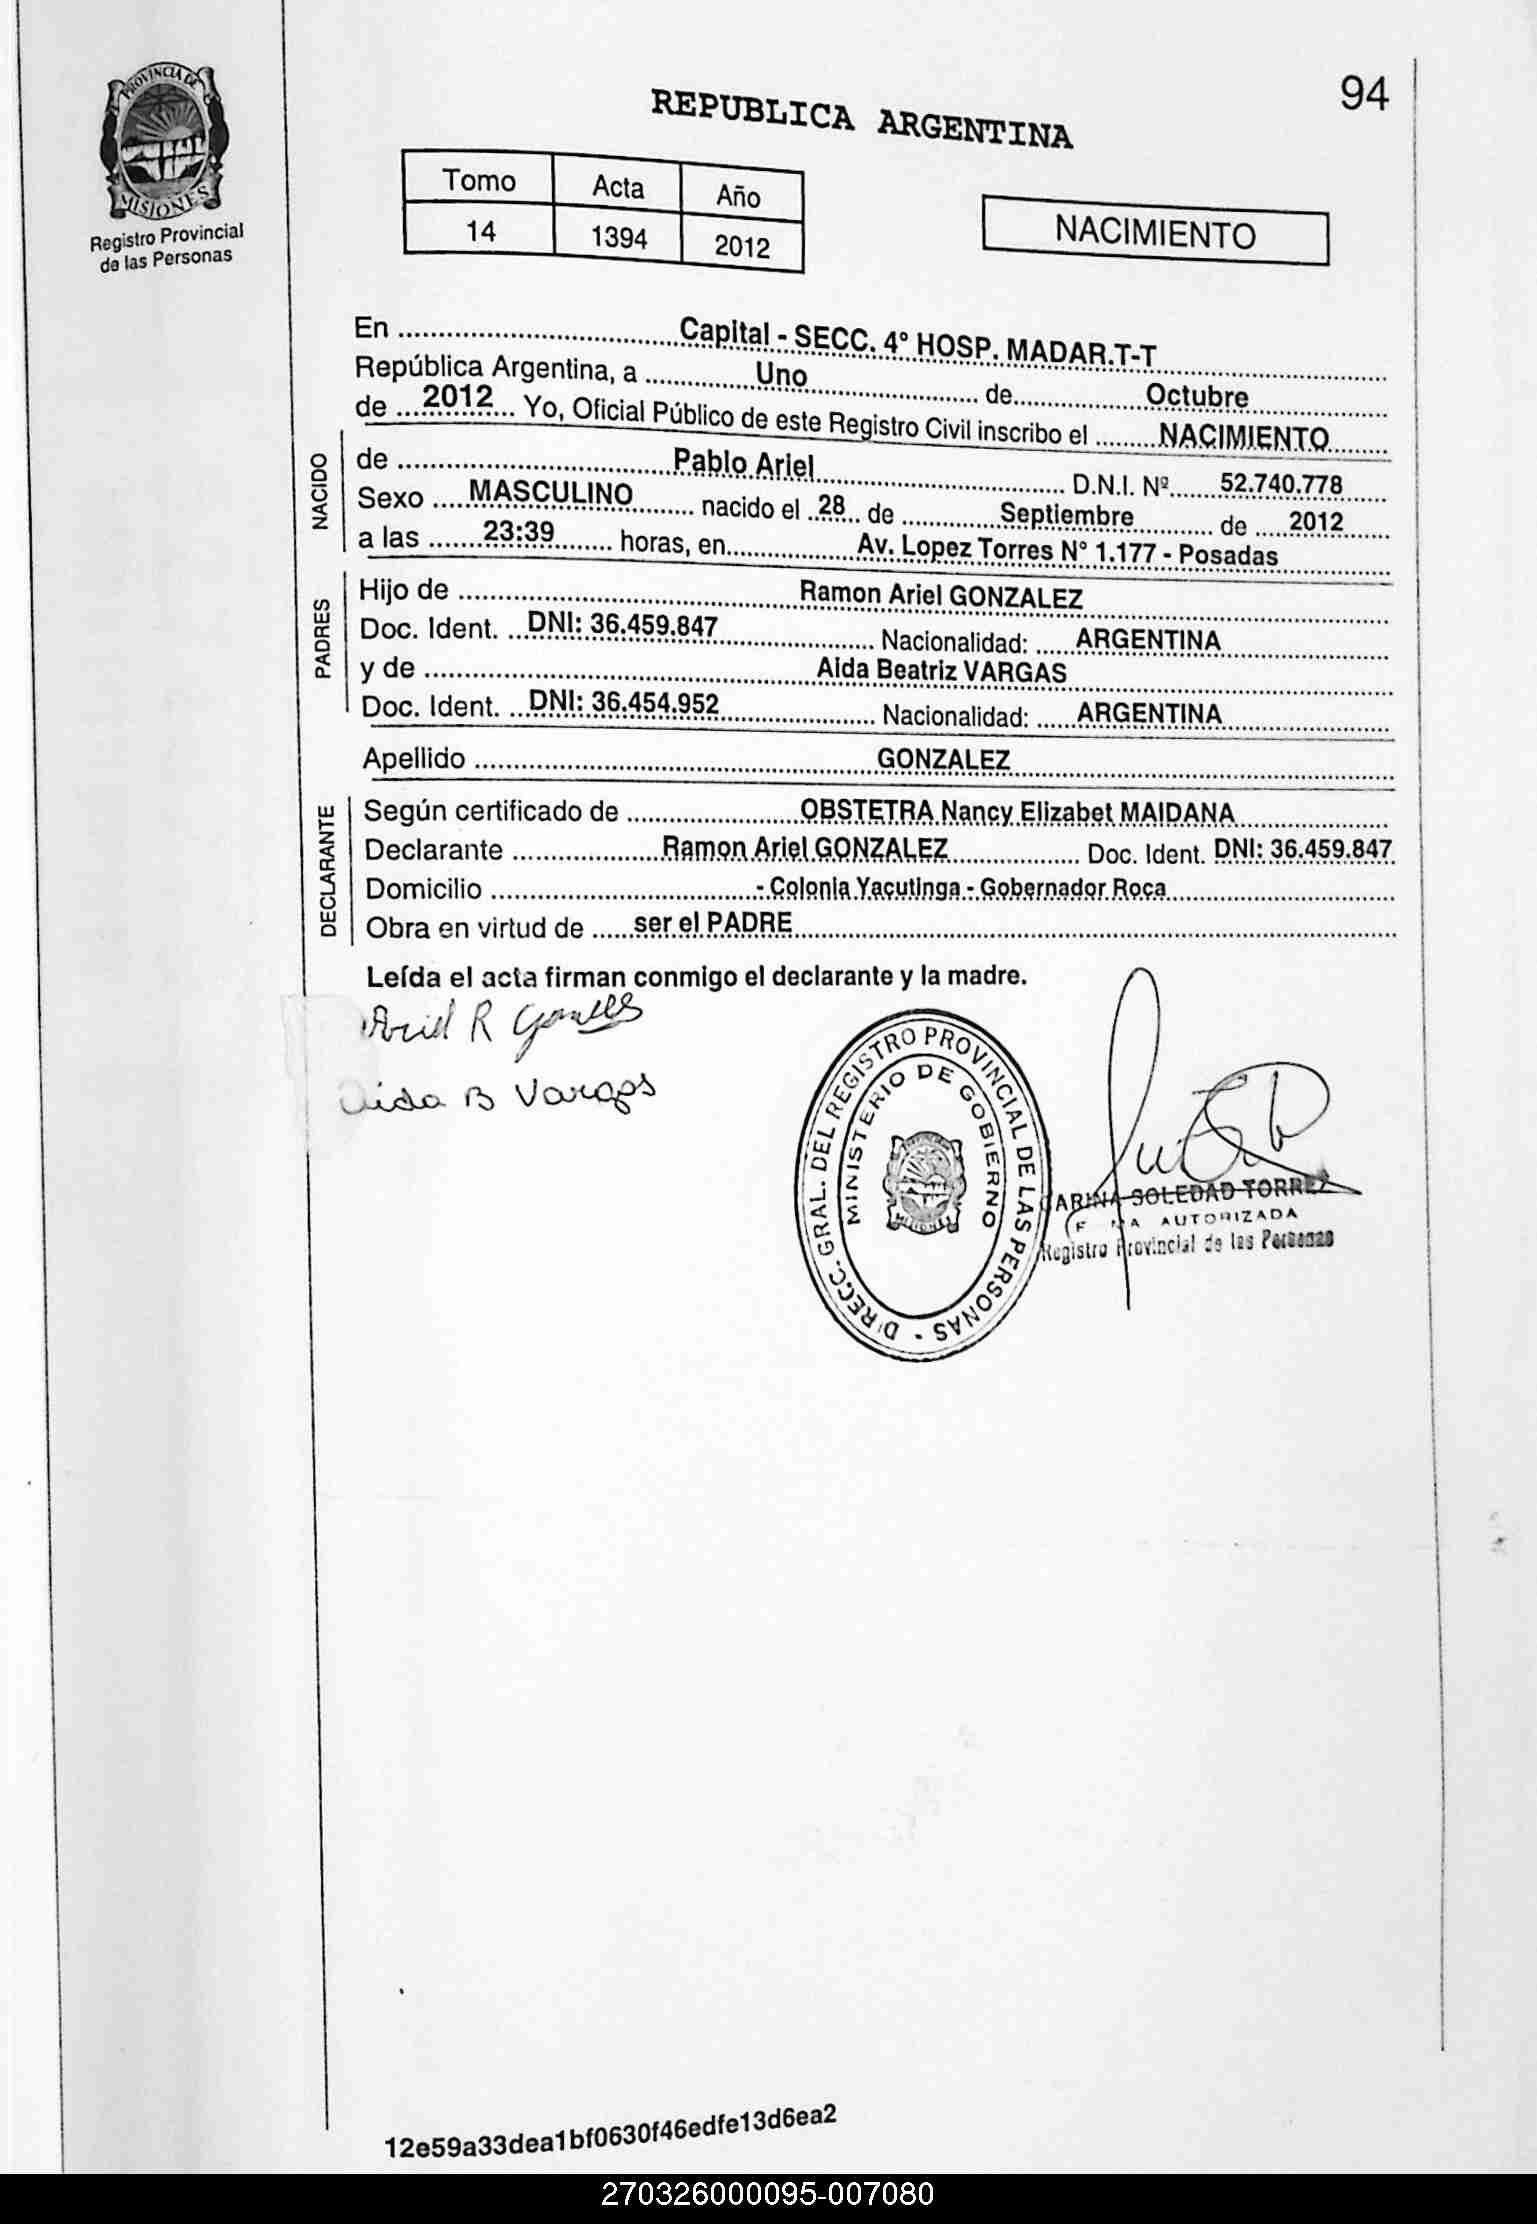 PROVINCIA DE
MISIONES
Registro Provincial
de las Personas
94
REPUBLICA ARGENTINA
Tomo Acta Año
14 1394 2012
NACIMIENTO
En ........ Capital - SECC. 4° HOSP. MADAR.T-T
República Argentina, a ........ Uno ........ de ........ Octubre
de ... 2012 ... Yo, Oficial Público de este Registro Civil inscribo el ........ NACIMIENTO
NACIDO
de ........ Pablo Ariel ........ D.N.I. Nº ...... 52.740.778
Sexo .... MASCULINO ........ nacido el .. 28 .. de ........ Septiembre ........ de .... 2012
a las ....... 23:39 ........ horas, en ........ Av. Lopez Torres N° 1.177 - Posadas
PADRES
Hijo de ........ Ramon Ariel GONZALEZ
Doc. Ident. ... DNI: 36.459.847 ........ Nacionalidad: ..... ARGENTINA
y de ........ Aida Beatriz VARGAS
Doc. Ident. ... DNI: 36.454.952 ........ Nacionalidad: ..... ARGENTINA
Apellido ........ GONZALEZ
DECLARANTE
Según certificado de ........ OBSTETRA Nancy Elizabet MAIDANA
Declarante ........ Ramon Ariel GONZALEZ ........ Doc. Ident. DNI: 36.459.847
Domicilio ........ - Colonia Yacutinga - Gobernador Roca
Obra en virtud de ...... ser el PADRE
Leída el acta firman conmigo el declarante y la madre.
Ariel R
Aida B Vargas
DIRECC. GRAL. DEL REGISTRO PROVINCIAL DE LAS PERSONAS -
MINISTERIO DE GOBIERNO
MISIONES
SOLEDAD TORREZ
AUTORIZADA
Registro Provincial de las Personas
12e59a33dea1bf0630f46edfe13d6ea2
270326000095-007080